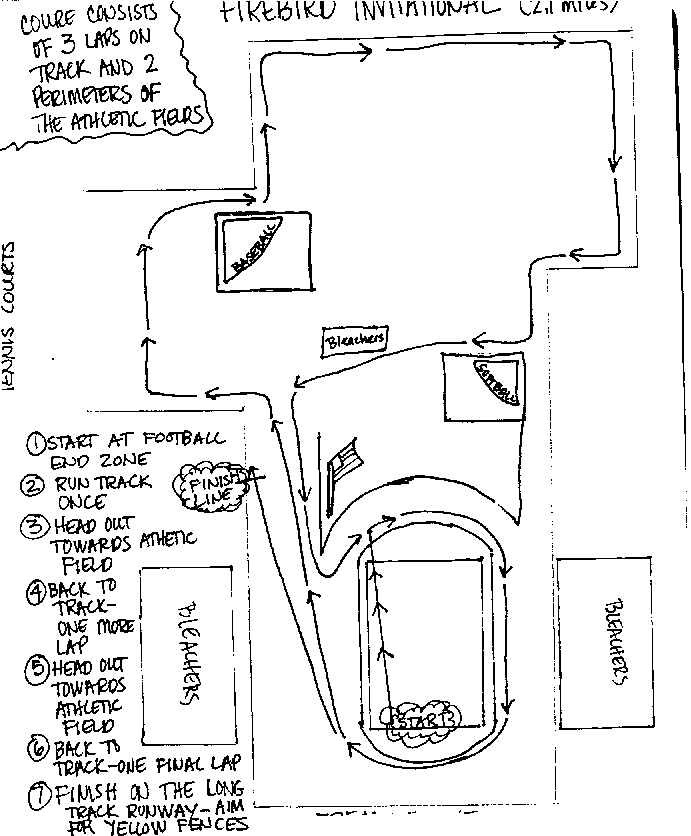 FIREBIRD INVITATIONAL (2.1 miles)
COURE CONSISTS
OF 3 LAPS ON
TRACK AND 2
PERIMETERS OF
THE ATHLETIC FIELDS
BASEBALL
TENNIS COURTS
Bleachers
SOFTBALL
① START AT FOOTBALL
END ZONE
② RUN TRACK
ONCE
③ HEAD OUT
TOWARDS ATHETIC
FIELD
④ BACK TO
TRACK-
ONE MORE
LAP
⑤ HEAD OUT
TOWARDS
ATHLETIC
FIELD
⑥ BACK TO
TRACK-ONE FINAL LAP
⑦ FINISH ON THE LONG
TRACK RUNWAY-AIM
FOR YELLOW FENCES
FINISH
LINE
BLEACHERS
START
BLEACHERS